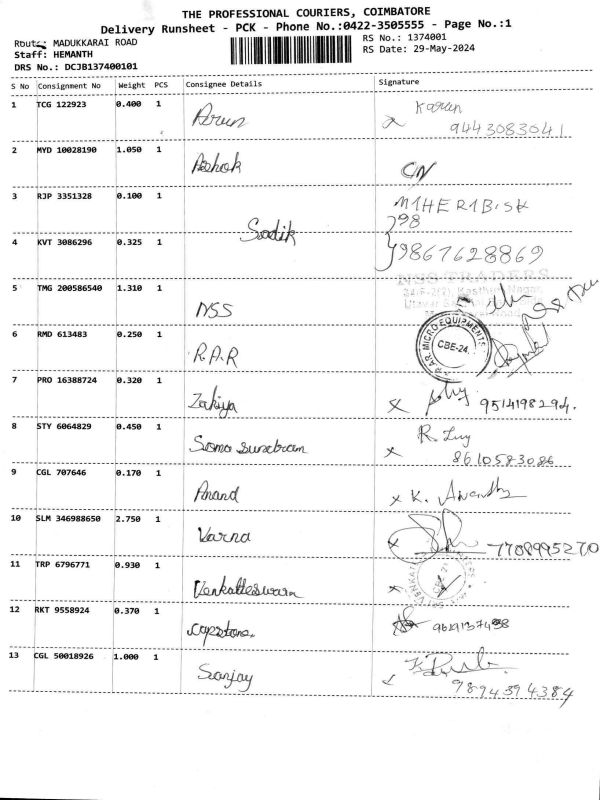 THE PROFESSIONAL COURIERS, COIMBATORE
Delivery Runsheet - PCK - Phone No.:0422-3505555 - Page No.:1
Route: MADUKKARAI ROAD
RS No.: 1374001
Staff: HEMANTH
RS Date: 29-May-2024
DRS No.: DCJB137400101
S No Consignment No Weight PCS Consignee Details Signature
1 TCG 122923 0.400 1 Arun Karun
9443083041
2 MYD 10028190 1.050 1 Ashok
3 RJP 3351328 0.100 1
98
Sadik
4 KVT 3086296 0.325 1 9867628869
NSS TRADERS
5 TMG 200586540 1.310 1 NSS
6 RMD 613483 0.250 1 R.A.R
R.A.R. MICRO EQUIPMENTS
CBE-24.
7 PRO 16388724 0.320 1 Zakiya 9514198294.
8 STY 6064829 0.450 1 Soma sundram
8610583086
9 CGL 707646 0.170 1 Anand K. Ananthy
10 SLM 346988650 2.750 1 Varna 7708995270
11 TRP 6796771 0.930 1 Venkatteswara
12 RKT 9558924 0.370 1 Capstone
13 CGL 50018926 1.000 1 Sanjay
9894394384